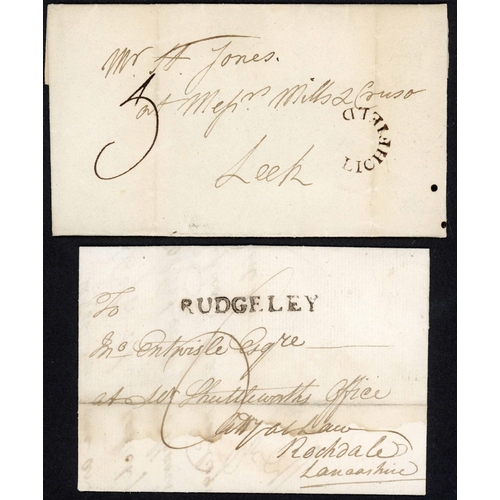 Mr. H. Jones.
5
at Messrs Mills & Cruso
LICHFIELD
Leek
RUDGELEY
To
Jno Entwisle Esqre
at Mr Shuttleworths Office
Atty at Law
Rochdale
Lancashire